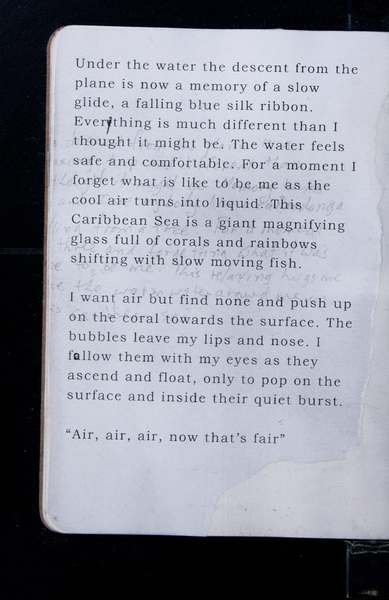 Under the water the descent from the
plane is now a memory of a slow
glide, a falling blue silk ribbon.
Everything is much different than I
thought it might be. The water feels
safe and comfortable. For a moment I
forget what is like to be me as the
cool air turns into liquid. This
Caribbean Sea is a giant magnifying
glass full of corals and rainbows
shifting with slow moving fish.
I want air but find none and push up
on the coral towards the surface. The
bubbles leave my lips and nose. I
follow them with my eyes as they
ascend and float, only to pop on the
surface and inside their quiet burst.
“Air, air, air, now that’s fair”